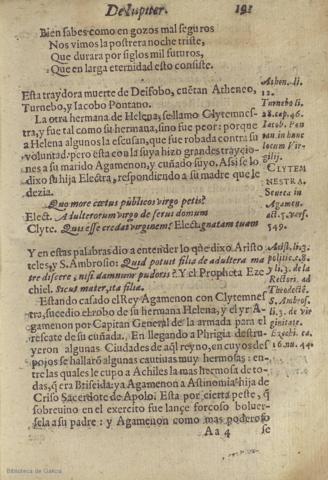 De Iupiter. 191
Bien sabes como en gozos mal seguros
Nos vimos la postrera noche triste,
Que durara por siglos mil futuros,
Que en larga eternidad esto consiste.
Esta traydora muerte de Deifobo, cuētan Atheneo,
Turnebo, y Iacobo Pontano.
La otra hermana de Helena, se llamo Clytemnes-
tra, y fue tal como su hermana, sino fue peor: porque
a Helena algunos la escusan, que fue robada contra su
voluntad pero esta con la suya hizo grandes traycio-
nes a su marido Agamenon, y cuñado suyo. Assi se lo
dixo su hija Electra, respondiendo a su madre que le
dezia.
Quo more cœtus publicos virgo petis?
Elect. Adulterorum virgo deserui domum
Clyte. Quis esse credat virginem? Elect. gnatam tuam
Y en estas palabras dio a entender lo que dixo Aristo
teles, y S. Ambrosio: Quid potuit filia de adultera ma
tre discere, nisi damnum pudoris? Y el Propheta Eze
chiel. Sicut mater, ita filia.
Estando casado el Rey Agamenon con Clytemnes
tra, sucedio el robo de su hermana Helena, y el yr A-
gamenon por Capitan General de la armada para el
rescate de su cuñada. En llegando a Phrigia destru-
yeron algunas Ciudades de aql reyno, en cuyos des
pojos se hallarō algunas cautiuas muy hermosas: en-
tre las quales le cupo a Achiles la mas hermosa de to-
das, q̄ era Briseida: y a Agamenon a Astinomia hija de
Criso Sacerdote de Apolo. Esta por cierta peste, q̄
sobreuino en el exercito fue lance forcoso boluer-
sela a su padre: y Agamenon como mas poderoso
Aa 4 se
Athen. li.
12.
Turnebo li.
28. cap. 46.
Iacob. Pon
tan. in hunc
locum Vir-
gilij.
CLYTEM
NESTRA.
Seneca in
Agamen.
act. 5. vers.
549.
Aristi. li. 2.
politic. c. 8
y li. 3. de la
Rectori. ad
Theodectē.
S. Ambros.
li. 3. de vir
ginitate.
Ezechi. ca.
16. nu. 44.
Biblioteca de Galicia